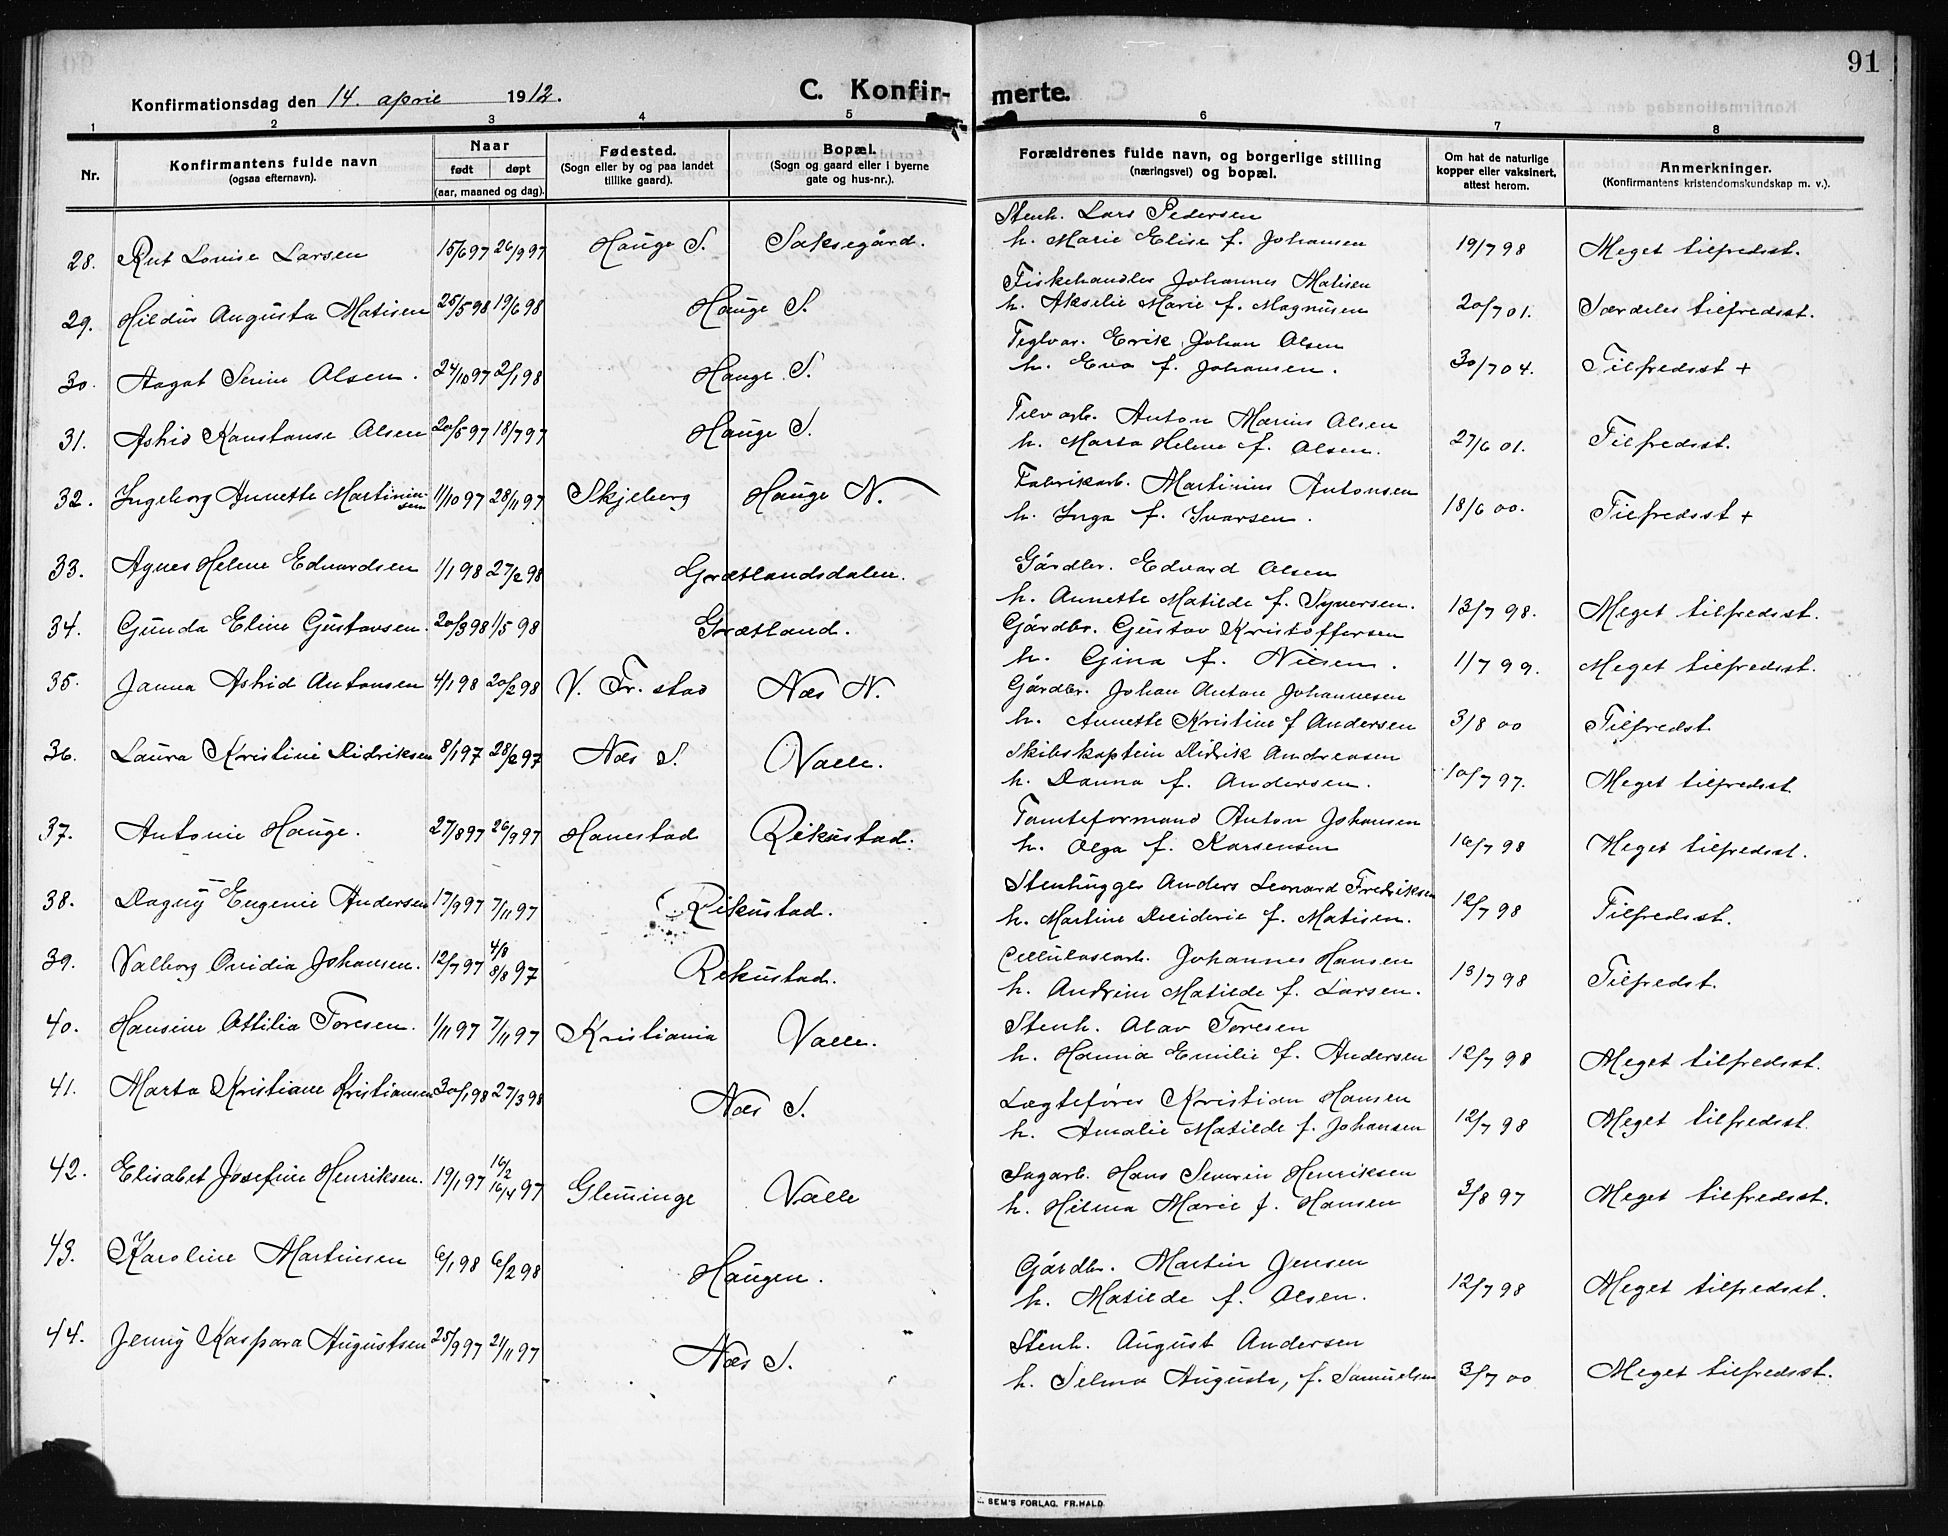 91
Konfirmationsdag den 14. april 1912. C. Konfir- merte.
1 2 3 4 5 6 7 8
Nr. Konfirmantens fulde navn (ogsaa efternavn). Naar født døpt (aar, maaned og dag). Fødested. (Sogn eller by og paa landet tillike gaard). Bopæl. (Sogn og gaard eller i byerne gate og hus-nr.). Forældrenes fulde navn, og borgerlige stilling (næringsvei) og bopæl. Om hat de naturlige kopper eller vaksinert, attest herom. Anmerkninger. (Konfirmantens kristendomskundskap m. v.).
28. Rut Lovise Larsen 15/6 97 26/9 97 Hauge S. Saksegård. Stenh. Lars Pedersen
h. Marie Elise f. Johansen 19/7 98 Meget tilfredsst.
29. Hildur Augusta Matisen 25/5 98 19/6 98 Hauge S. Fiskehandler Johannes Matisen
h. Akselie Marie f. Magnusen 20/7 01. Særdeles tilfredsst.
30. Aagot Serine Olsen. 24/10 97 2/1 98 Hauge S. Teglvar. Erik Johan Olsen
h. Eva f. Johansen. 30/7 04. Tilfredsst +
31. Astrid Konstanse Olsen 20/5 97 18/7 97 Hauge S. Anton Marius Olsen
h. Marta Helene f. Olsen. 27/6 01. Tilfredsst.
32. Ingeborg Annette Martinin-
sen 11/10 97 28/11 97 Skjeberg Hauge N. Fabrikarb. Martinius Antonsen
h. Inga f. Ivarsen. 18/6 00. Tilfredsst +
33. Agnes Helene Edvardsen 1/1 98 27/2 98 Grætlandsdalen. Gårdbr. Edvard Olsen
h. Annette Matilde f. Syversen. 13/7 98. Meget tilfredsst.
34. Gunda Eline Gustavsen. 20/3 98 1/5 98 Grætland. Gårdbr. Gustav Kristoffersen
h. Gina f. Nilsen. 1/7 99. Meget tilfredsst.
35. Janna Astrid Antonsen 4/1 98 20/2 98 V. Fr. stad Næs N. Gårdbr. Johan Anton Johannesen
h. Annette Kristine f Andersen 3/8 00 Tilfredst
36. Laura Kristine Didriksen 8/1 97 28/2 97 Næs S. Valle. Skibskaptein Didrik Andreasen
h. Danna f. Andersen. 10/7 97. Meget tilfredsst
37. Antonie Hauge. 27/8 97 26/9 97 Hanestad Rikustad. Tomteformand Anton Johansen
h. Olga f. Karsensen 16/7 98 Meget tilfredsst.
38. Dagny Eugenie Andersen 17/9 97 7/11 97 Rikustad. Stenhugger Anders Leonard Fredriksen
h. Martine f. Matisen. 12/7 98 Tilfredsst.
39. Valborg Ovidia Johansen. 12/7 97 4/8
8/8 97 Rikustad. Cellulosearb. Johannes Hansen
h. Andrine Matilde f. Larsen. 13/7 98 Tilfredst.
40. Hansine Attilia Toresen. 1/11 97 7/11 97 Kristiania Valle. Stenh. Olav Toresen
h. Hanna Emilie f. Andersen 12/7 98 Meget tilfredsst.
41. Marta Kristiane Kristiansen 30/1 98 27/3 98 Næs S. Lægtefører Kristian Hansen
h. Amalie Matilde f. Johansen 12/7 98 Meget tilfredsst
42. Elisabet Josefine Henriksen. 19/1 97 16/2
16/4 97 Glemminge Valle Sagarb. Hans Severin Henriksen
h. Hilma Marie f. Hansen 3/8 97 Meget tilfredsst.
43. Karoline Martinsen 6/1 98 6/2 98 Haugen. Gårdbr. Martin Jensen
h. Matilde f. Olsen. 12/7 98 Meget tilfredsst.
44. Jenny Kaspara Augustsen 25/9 97 21/11 97 Næs S. Stenh. August Andersen
h. Selma Augusta, f. Samuelsen 3/7 00 Meget tilfredsst.
SEM'S FORLAG, FR.HALD